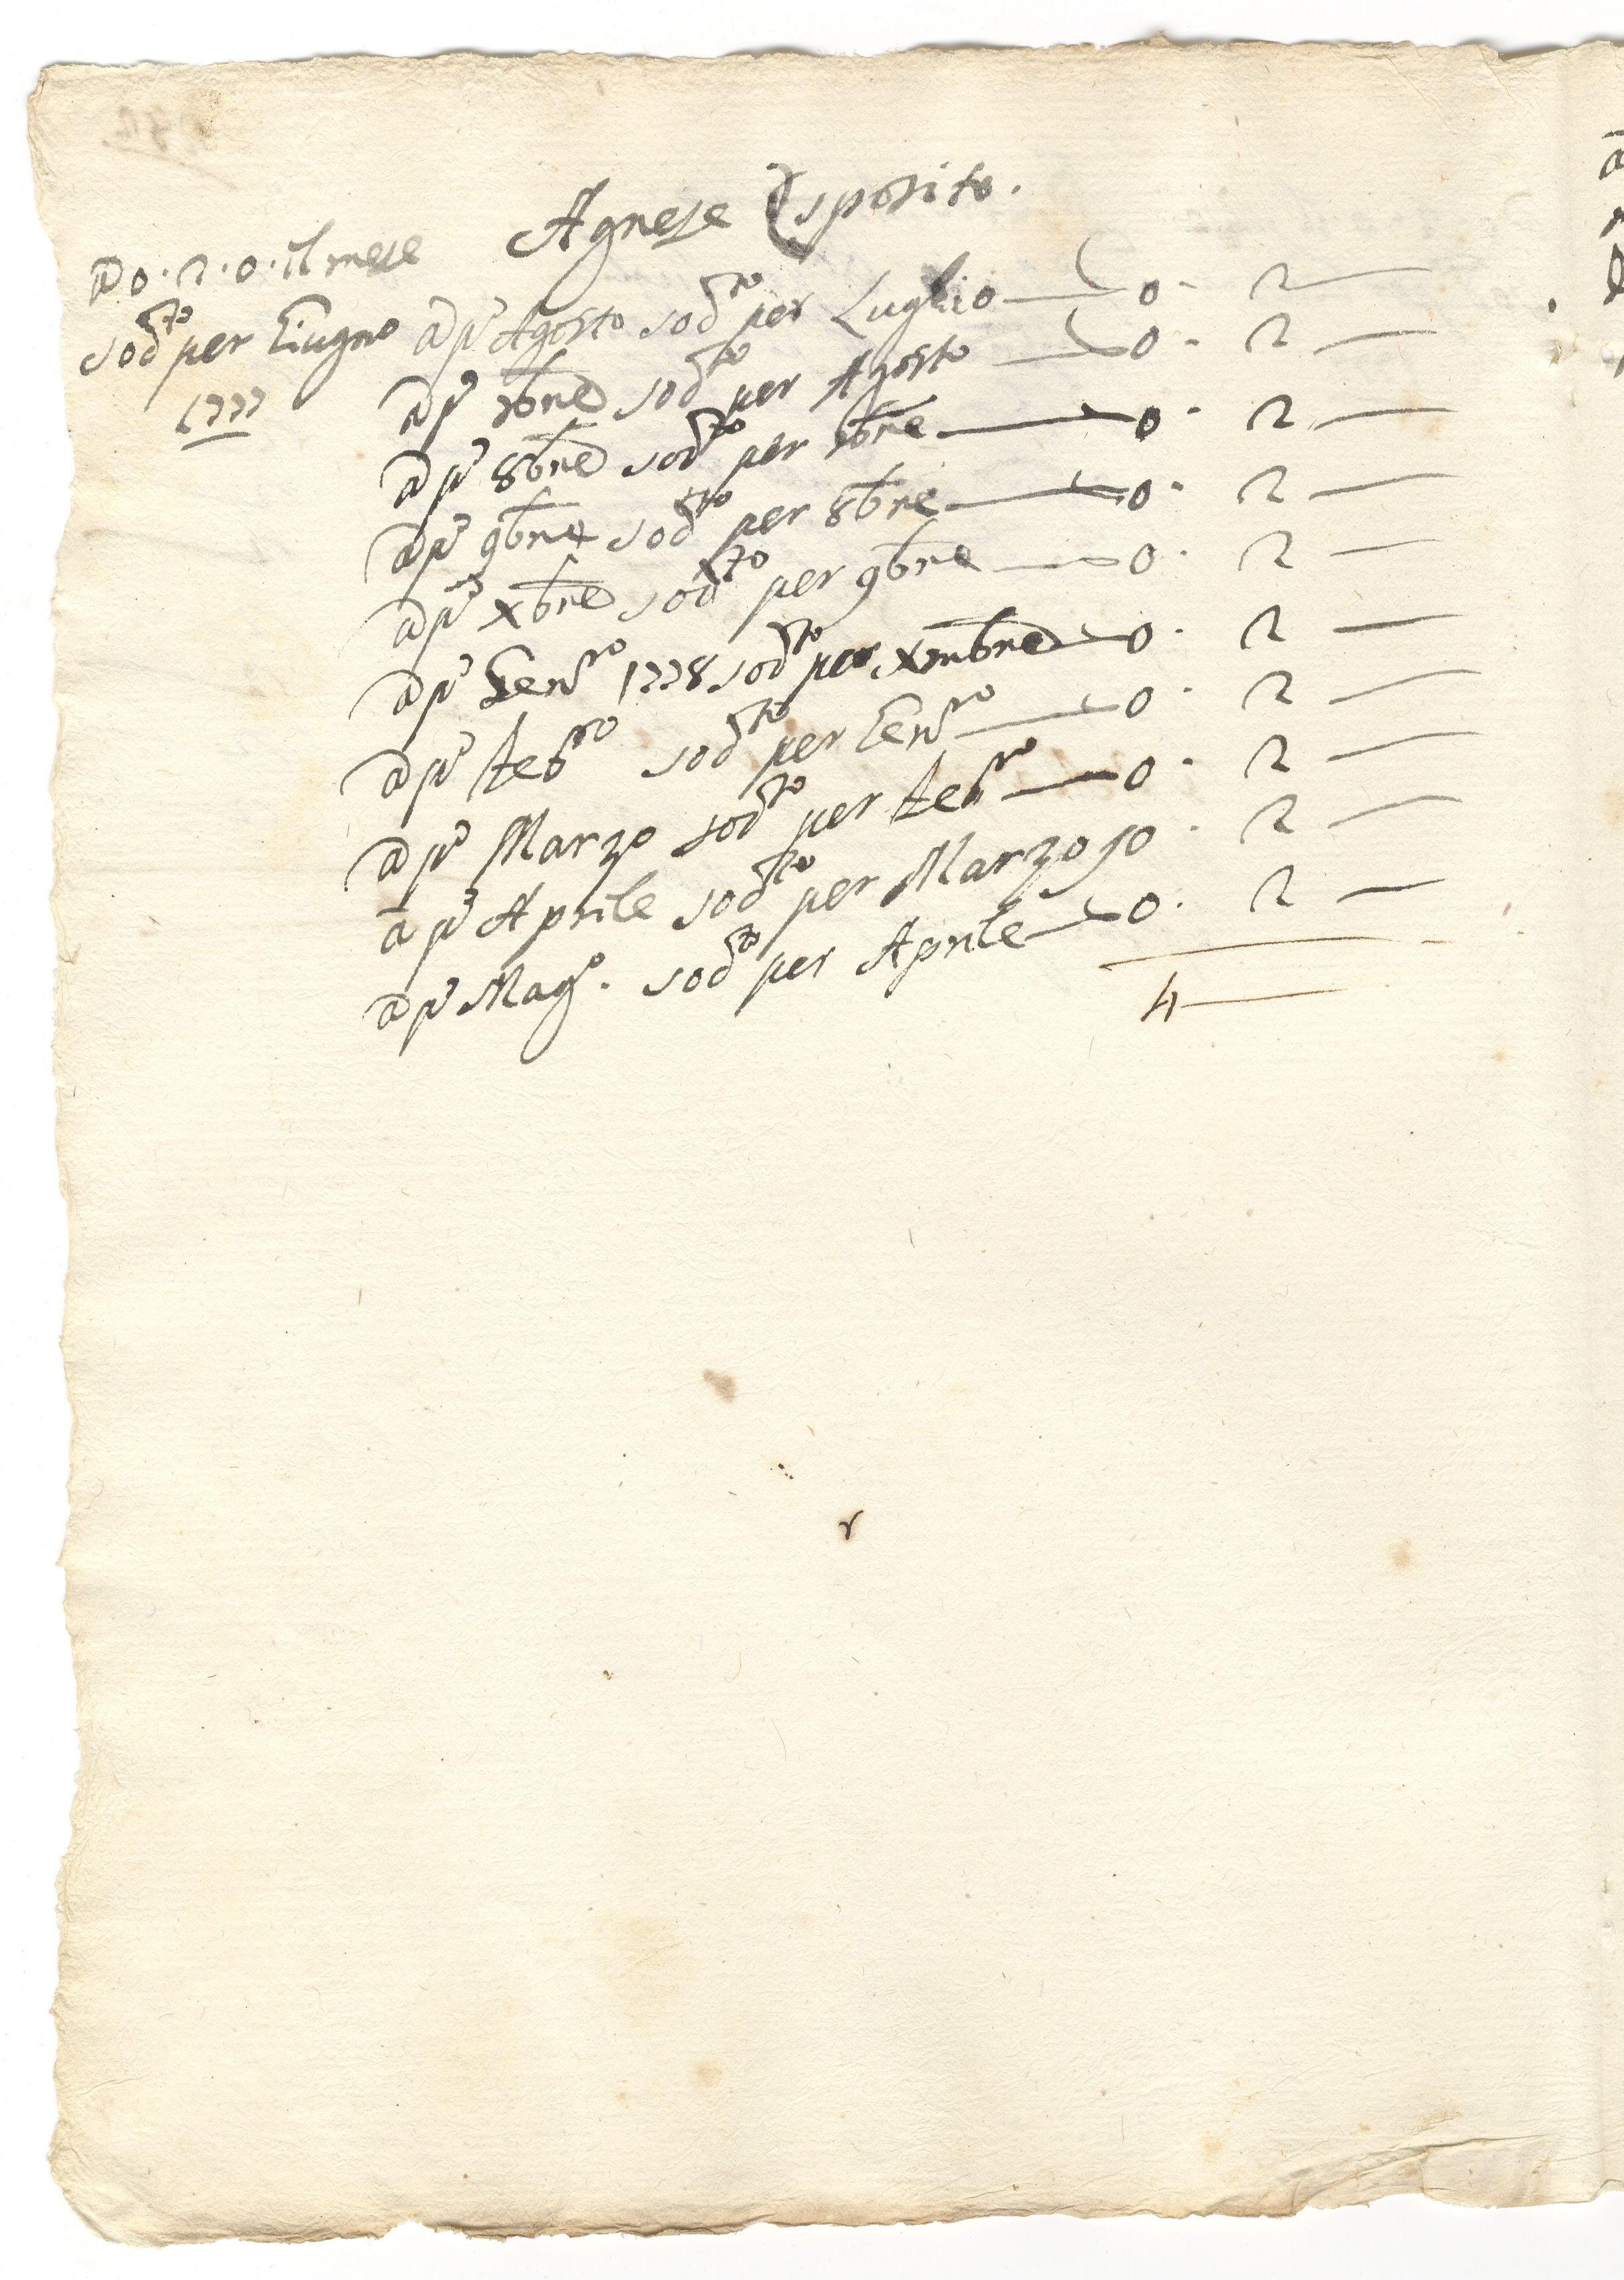 Agnese Esposito.
a 0. 2. 0. il mese
sod.to per Giugno
1777
a p.o Agosto sod.to per Luglio — 0 - 2 —
a p.o 7bre sod.to per Agosto — 0 - 2 —
a p.o 8bre sod.to per 7bre — 0 - 2 —
a p.o 9bre sod.to per 8bre — 0 - 2 —
a p.o xbre sod.to per 9bre — 0 - 2 —
a p.o Gen.ro 1778 sod.to per xmbre — 0 - 2 —
a p.o feb.ro sod.to per Gen.ro — 0 - 2 —
a p.o Marzo sod.to per feb.ro — 0 - 2 —
a p.o Aprile sod.to per Marzo 0 - 2 —
a p.o Mag.o sod.to per Aprile — 0 - 2 —
4 —